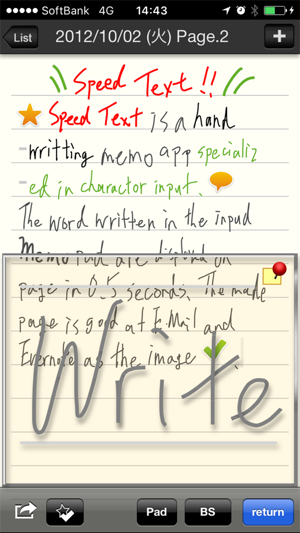 SoftBank 4G 14:43
List 2012/10/02 (火) Page.2 +
Speed Text !!
Speed Text is a hand
writting memo app specializ
ed in charactor input.
The word written in the input
Memo Pad are display on
page in 0.5 seconds. The made
page is good at E-Mail and
Evernote as the image
Write
Pad BS return